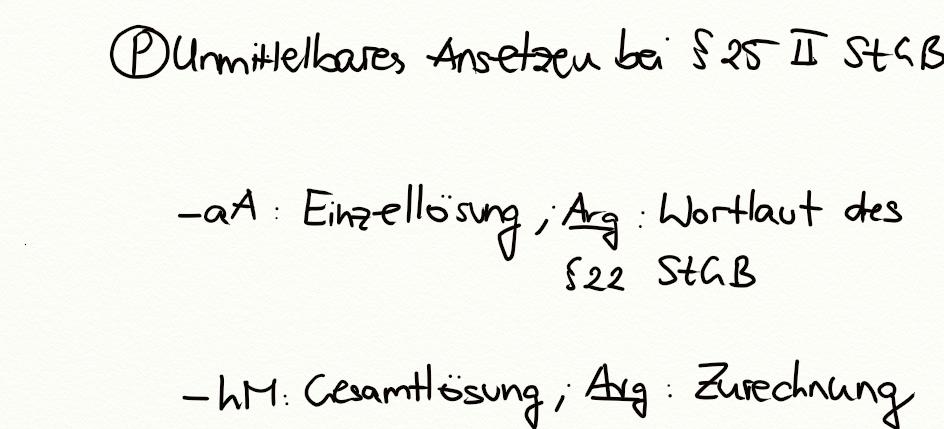 (P) Unmittelbares Ansetzen bei § 25 II StGB
-aA: Einzellösung; Arg: Wortlaut des
§22 StGB
-hM: Gesamtlösung; Arg: Zurechnung